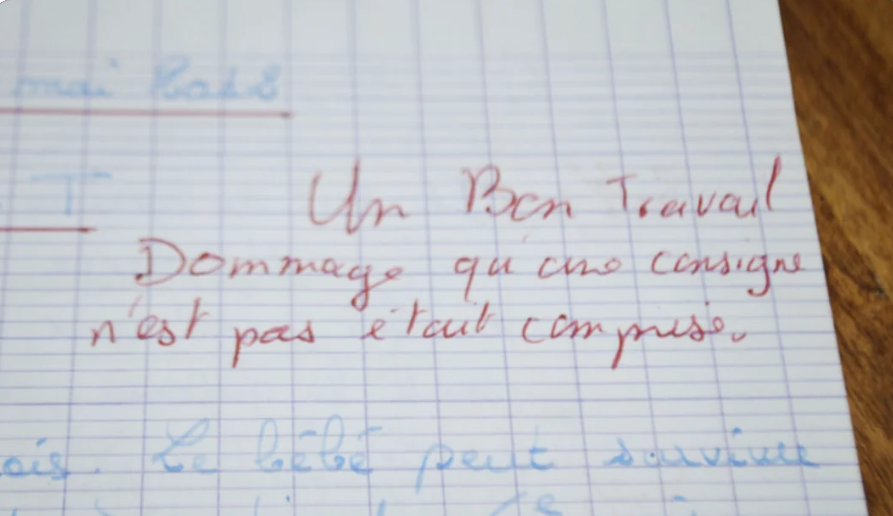 mai
T
Un Bon Travail
Dommage qu'une consigne
n'est pas était comprise.
ois. Le bébé peut survivre